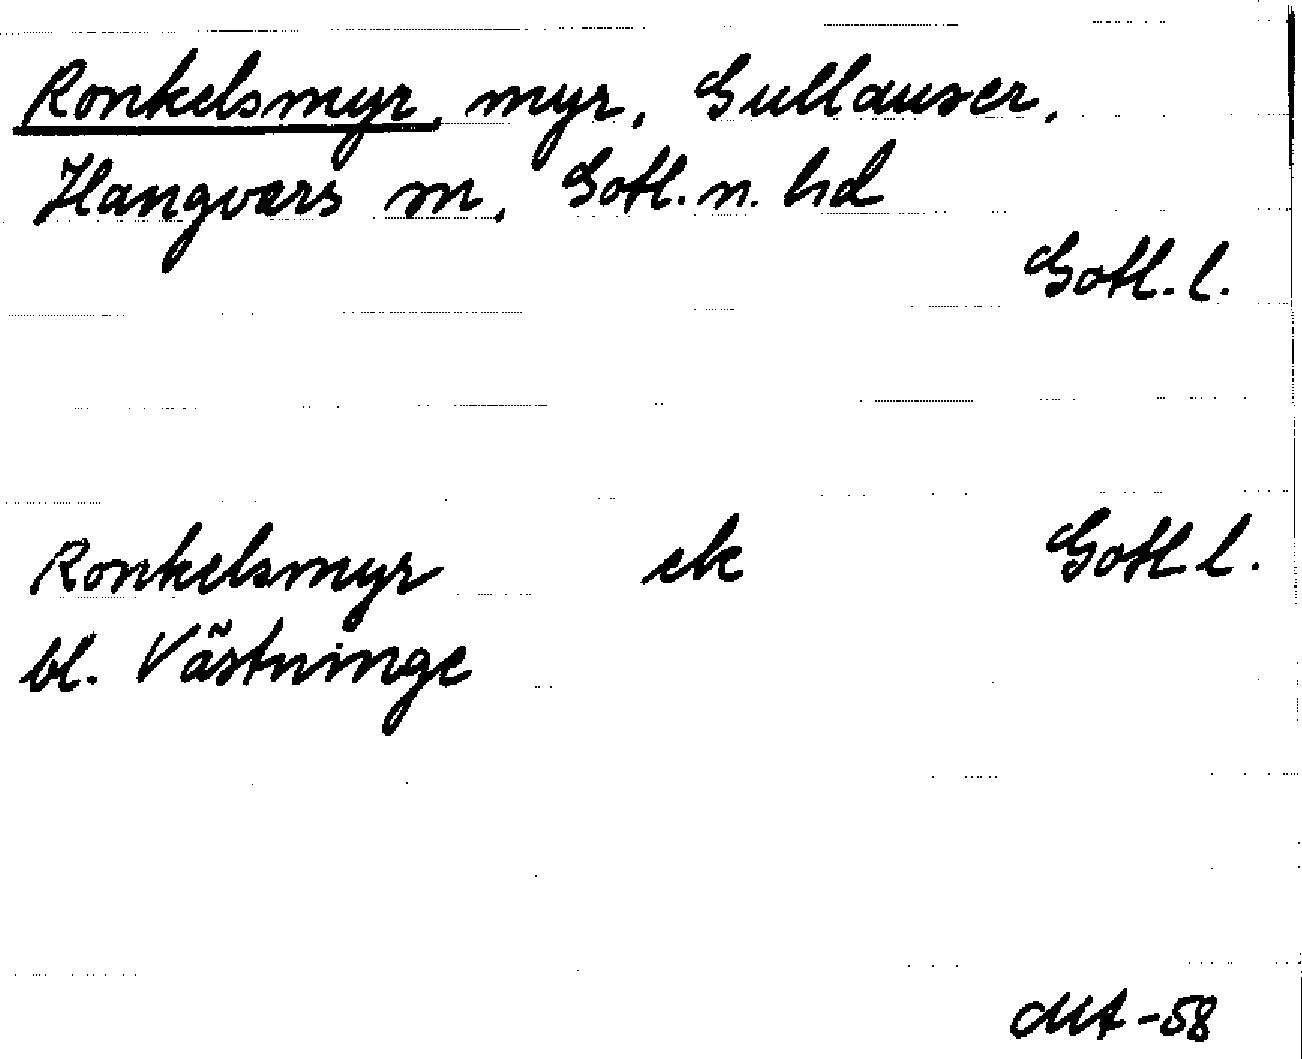 Ronkelsmyr, myr, Gullauser,
Hangvars sn, Gotl. n. hd
Gotl. l.
Ronkelsmyr ek Gotl l.
bl. Västninge
-58